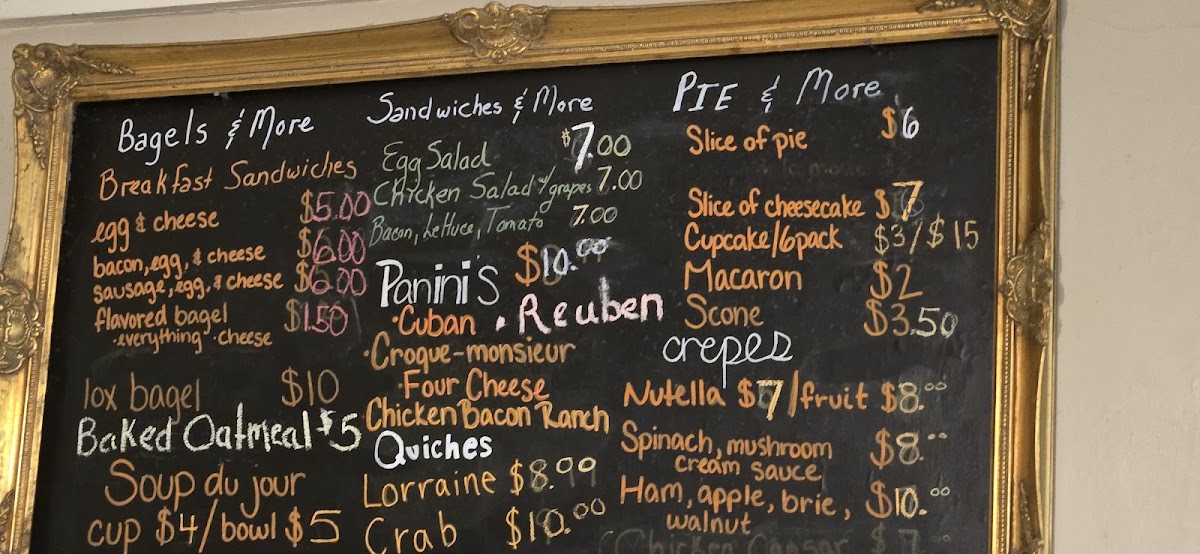 Bagels & More
Breakfast Sandwiches
egg & cheese $5.00
bacon, egg, & cheese $6.00
sausage, egg, & cheese $6.00
flavored bagel $1.50
·everything· ·cheese
lox bagel $10
Baked Oatmeal $5
Soup du jour
cup $4/bowl $5
Sandwiches & More
Egg Salad $7.00
Chicken Salad w/grapes 7.00
Bacon, Lettuce, Tomato 7.00
Panini's $10.00
·Cuban ·Reuben
·Croque-monsieur
·Four Cheese
Chicken Bacon Ranch
Quiches
Lorraine $8.99
Crab $10.00
PIE & More
Slice of pie $6
Slice of cheesecake $7
Cupcake/6pack $3/$15
Macaron $2
Scone $3.50
crepes
Nutella $7/fruit $8.00
Spinach, mushroom $8.
cream sauce
Ham, apple, brie, $10.00
walnut
Chicken Caesar $7